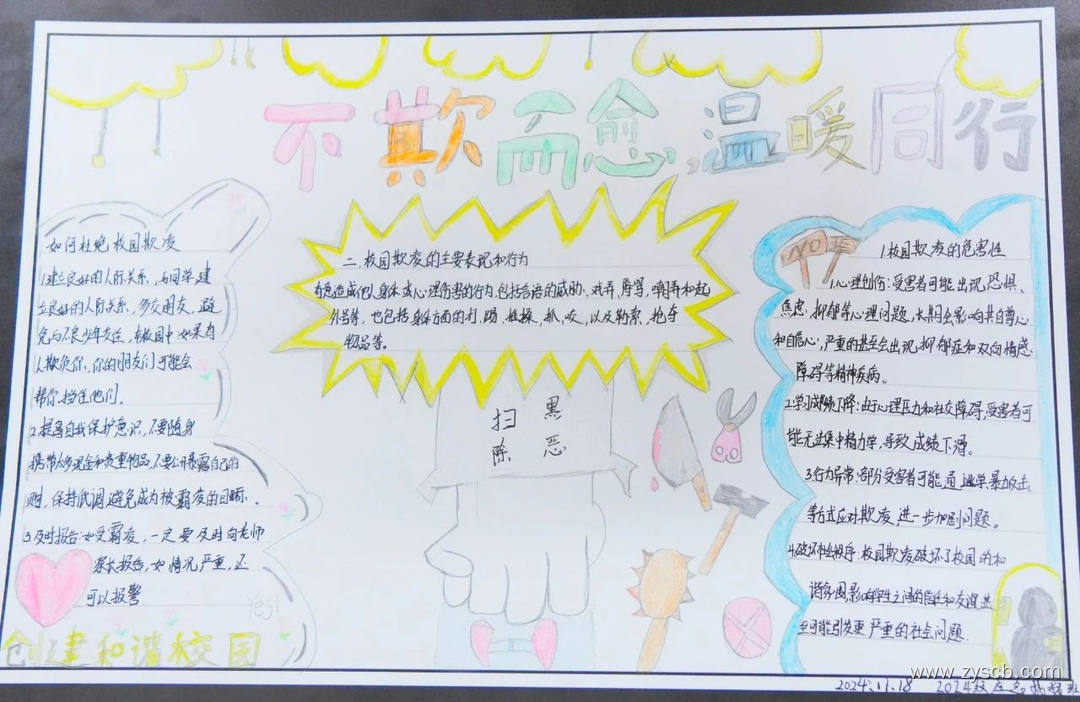 不欺而愈,温暖同行
如何杜绝校园欺凌
1.建立良好的人际关系,与同学建
立良好的人际关系,多交朋友,避
免与不良少年交往,在校园中如果有
人欺负你,你的朋友们可能会
帮你挡住他们。
2.提高自我保护意识,不要随身
携带太多现金和贵重物品,不要公开暴露自己的
财,保持低调避免成为被霸凌的目标.
3.及时报告:如受霸凌,一定要及时向老师
家长报告,如情况严重,还
可以报警
Yes!
创建和谐校园
二.校园欺凌的主要表现和行为
有意造成他人身体或心理伤害的行为,包括言语的威胁、戏弄、辱骂,嘲弄和起
外号等,也包括身体方面的打,踢,推搡,抓,咬,以及勒索,抢夺
物品等。
扫黑
除恶
NO
1.校园欺凌的危害性
1.心理创伤:受害者可能出现恐惧、
焦虑,抑郁等心理问题,长期会影响其自尊心
和自信心,严重的甚至会出现抑郁症和双向情感
障碍等精神疾病。
2.学习成绩下降:由于心理压力和社交障碍,受害者可
能无法集中精力学,导致成绩下滑。
3.行为异常:部分受害者可能通逃学,暴力反击,
等方式应对欺凌,进一步加剧问题。
4.破坏社会秩序:校园欺凌破坏了校园的和
谐氛围影响学生之间的信任和友谊,甚
至可能引发更严重的社会问题.
www.zyscb.com
2024.11.18 2024级